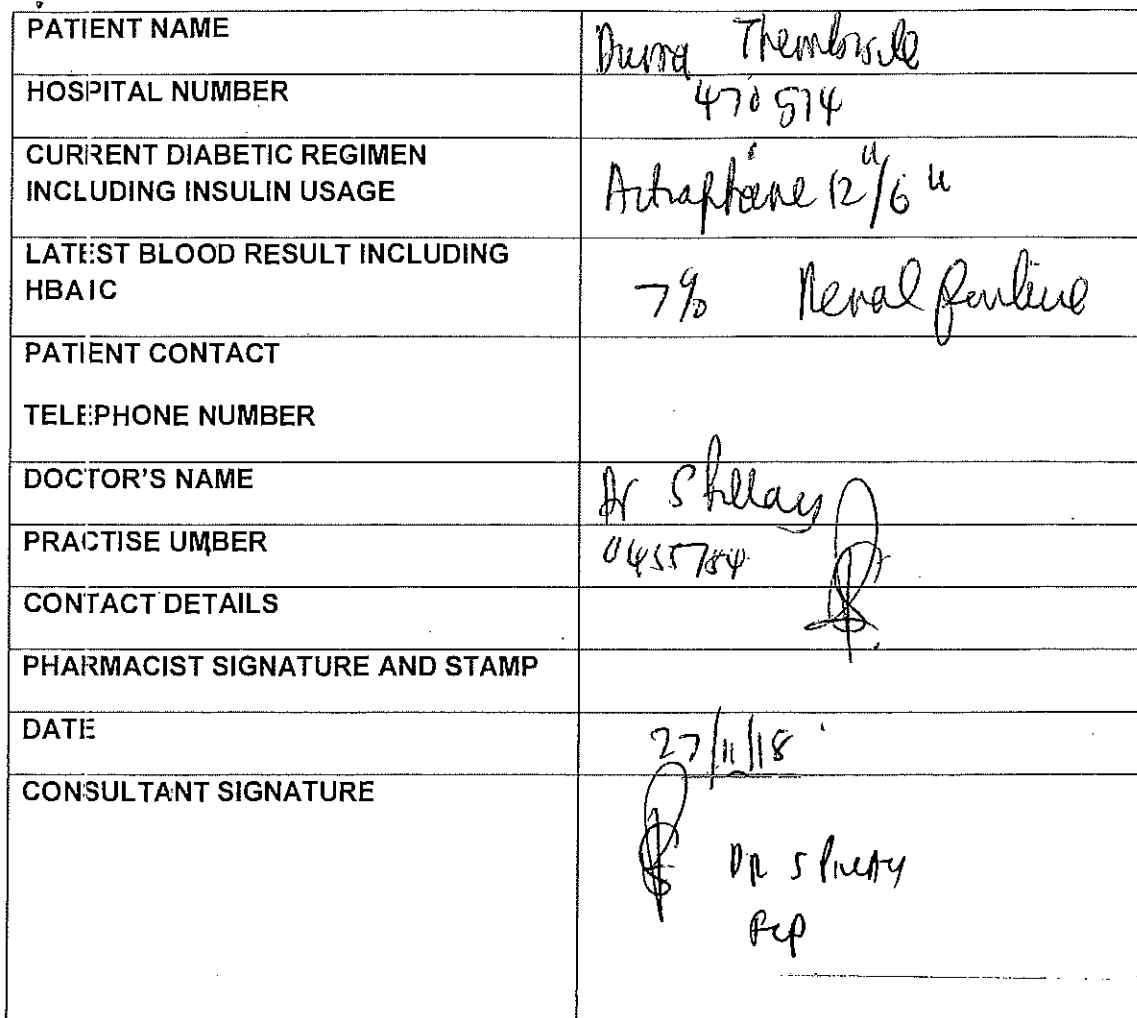 PATIENT NAME
Duma Thembisile
HOSPITAL NUMBER
470 574
CURRENT DIABETIC REGIMEN
INCLUDING INSULIN USAGE
Actraphane 12u/6u
LATEST BLOOD RESULT INCLUDING
HBA1C
7% Renal
PATIENT CONTACT
TELEPHONE NUMBER
DOCTOR'S NAME
Dr S Pillay
PRACTISE UMBER
0455784
CONTACT DETAILS
PHARMACIST SIGNATURE AND STAMP
DATE
27/11/18
CONSULTANT SIGNATURE
DR S PILLAY
FCP